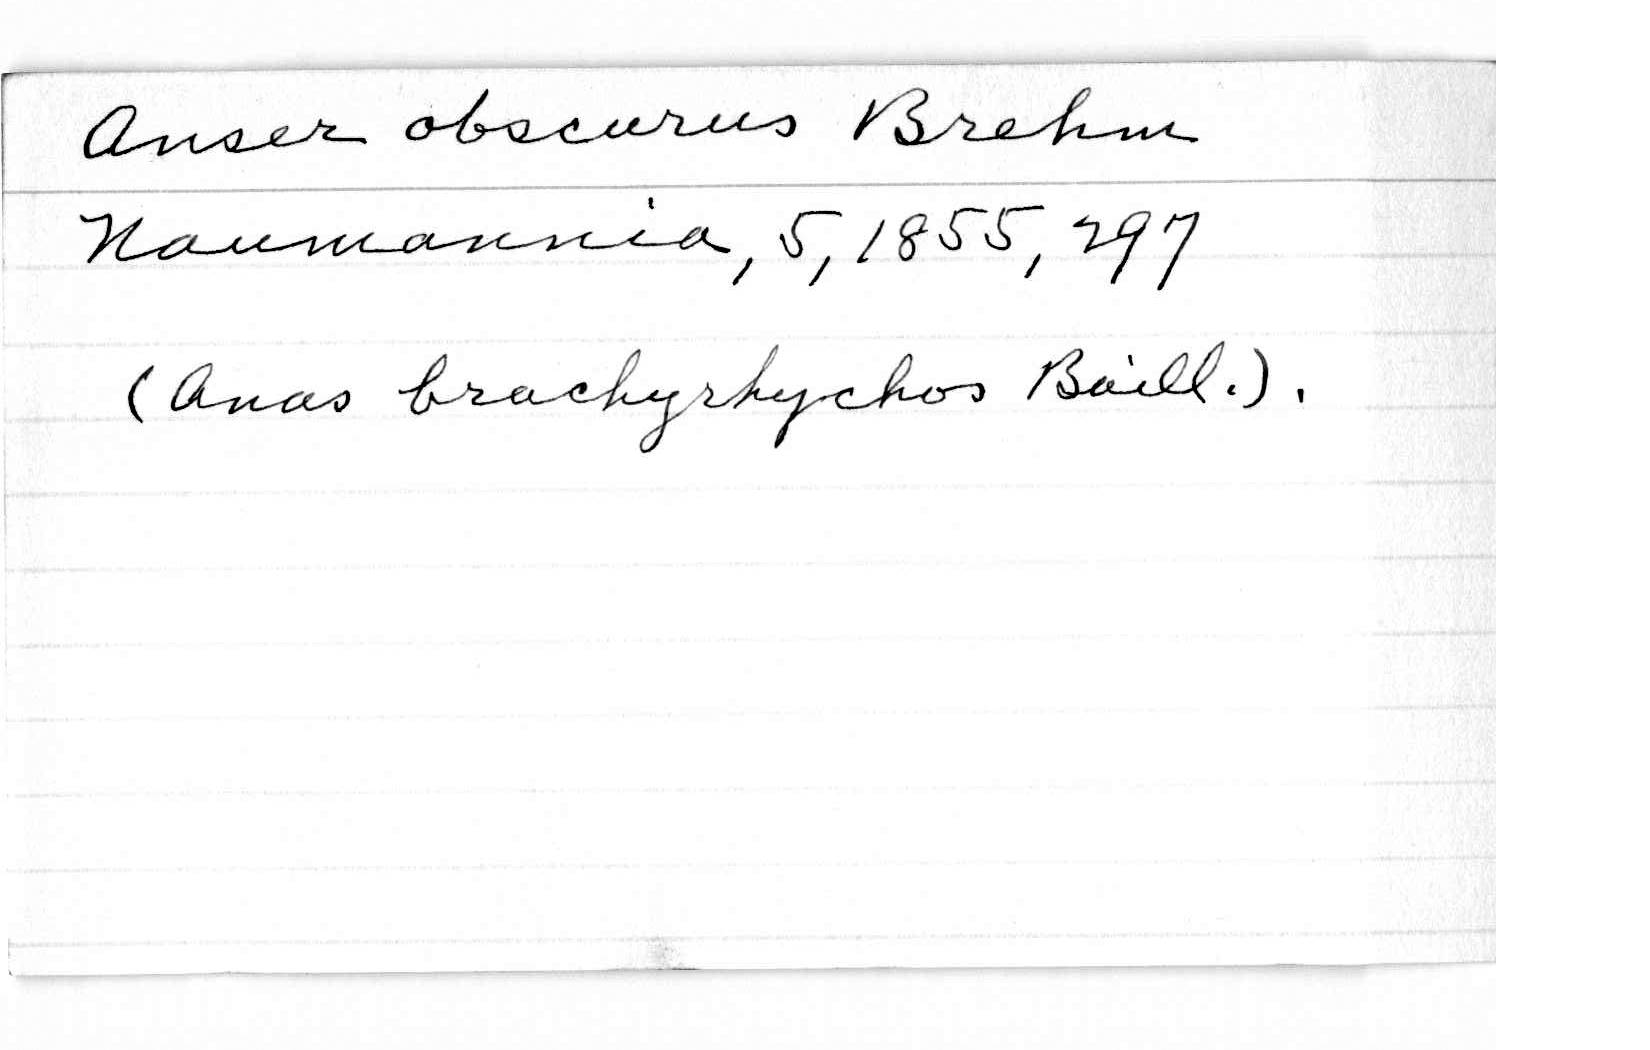 Anser obscurus Brehm
Naumannia, 5, 1855, 297
(Anas brachyrhychos Baill.).